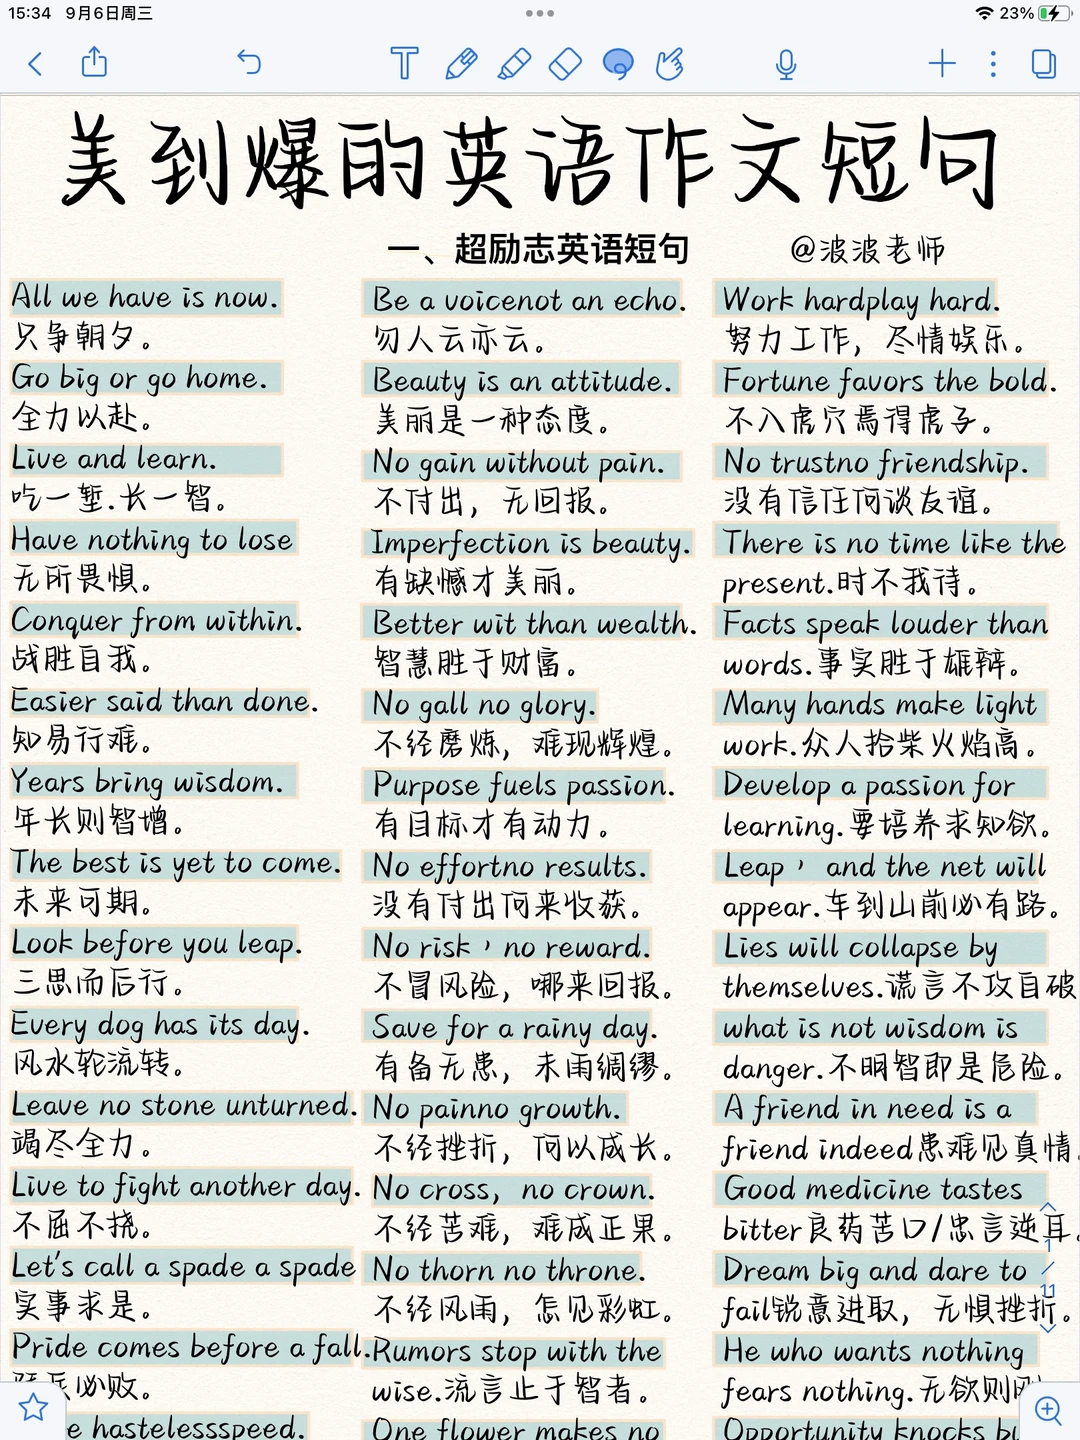 15:34 9月6日周三
23%
美到爆的英语作文短句
一、超励志英语短句
@波波老师
All we have is now.
只争朝夕。
Go big or go home.
全力以赴。
Live and learn.
吃一堑.长一智。
Have nothing to lose
无所畏惧。
Conquer from within.
战胜自我。
Easier said than done.
知易行难。
Years bring wisdom.
年长则智增。
The best is yet to come.
未来可期。
Look before you leap.
三思而后行。
Every dog has its day.
风水轮流转。
Leave no stone unturned.
竭尽全力。
Live to fight another day.
不屈不挠。
Let's call a spade a spade
实事求是。
Pride comes before a fall.
必败。
e hastelessspeed.
Be a voicenot an echo.
勿人云亦云。
Beauty is an attitude.
美丽是一种态度。
No gain without pain.
不付出，无回报。
Imperfection is beauty.
有缺憾才美丽。
Better wit than wealth.
智慧胜于财富。
No gall no glory.
不经磨炼，难现辉煌。
Purpose fuels passion.
有目标才有动力。
No effortno results.
没有付出何来收获。
No risk，no reward.
不冒风险，哪来回报。
Save for a rainy day.
有备无患，未雨绸缪。
No painno growth.
不经挫折，何以成长。
No cross，no crown.
不经苦难，难成正果。
No thorn no throne.
不经风雨，怎见彩虹。
Rumors stop with the
wise.流言止于智者。
One flower makes no
Work hardplay hard.
努力工作，尽情娱乐。
Fortune favors the bold.
不入虎穴焉得虎子。
No trustno friendship.
没有信任何谈友谊。
There is no time like the
present.时不我待。
Facts speak louder than
words.事实胜于雄辩。
Many hands make light
work.众人拾柴火焰高。
Develop a passion for
learning.要培养求知欲。
Leap，and the net will
appear.车到山前必有路。
Lies will collapse by
themselves.谎言不攻自破
what is not wisdom is
danger.不明智即是危险。
A friend in need is a
friend indeed患难见真情.
Good medicine tastes
bitter良药苦口/忠言逆耳.
Dream big and dare to
fail锐意进取，无惧挫折。
He who wants nothing
fears nothing.无欲则刚
Opportunity knocks bu
1/11